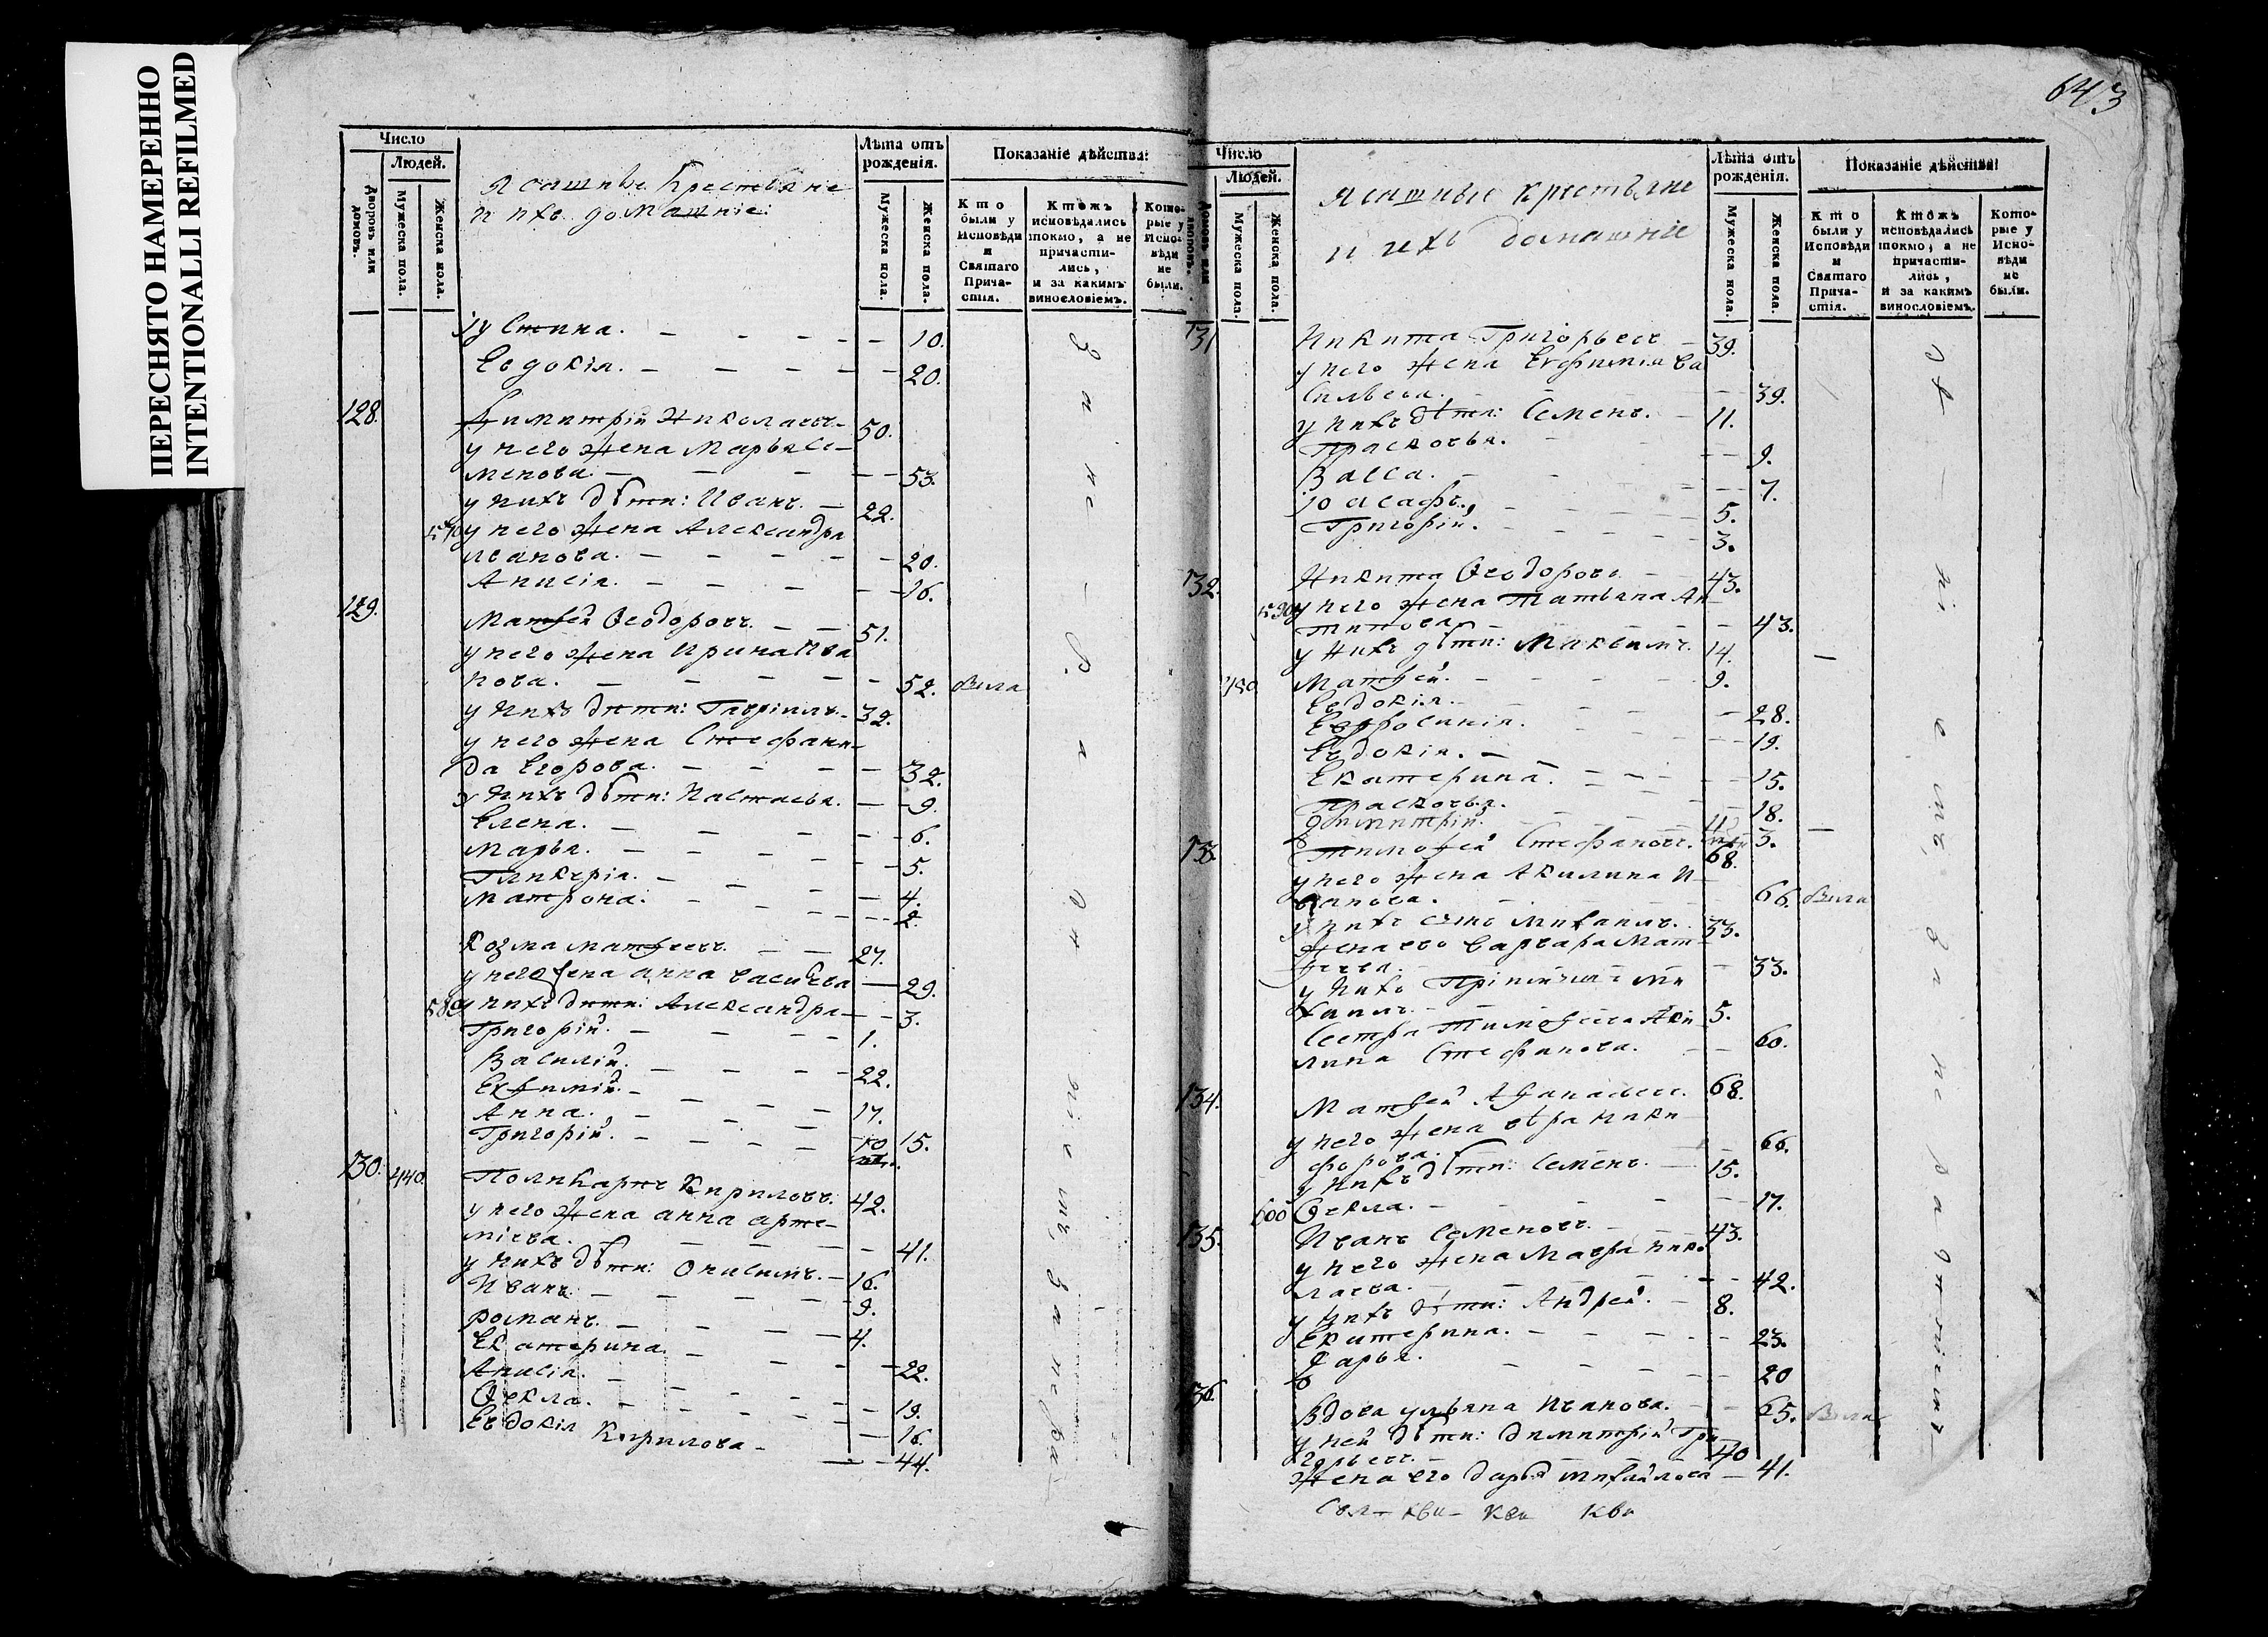 ПЕРЕСНЯТО НАМЕРЕННО
INTENTIONALLI REFILMED
Число
Людей.
Дворовъ или домовъ.
Мужеска пола.
Женска пола.
Ясашные Крестьяне
и ихъ домашніе:
Лѣта отъ рожденія.
Мужеска пола.
Женска пола.
Показаніе дѣйства:
Кто были у Исповѣди и Святаго Причастія.
Ктожъ исповѣдались токмо, а не причастились, и за какимъ винословіемъ.
Которые у Исповѣди не были.
Іустина. 10.
Евдокія. 20.
128. Димитрій Николаевъ 50.
у него жена Марья Се
менова. 53.
у нихъ дѣти: Иванъ. 22.
у него жена Александра
Иванова. 20.
Анисія. 16.
129. Матѳей Ѳеодоровъ. 51.
у него жена Ирина Ива
нова. 52. Была
у нихъ дѣти: Гавріилъ. 32.
у него жена Стефани
да Егорова. 32.
у нихъ дѣти: Настасья. 9.
Елена. 6.
Марья. 5.
Гликерія. 4.
Матрона. 2.
Козма Матѳеевъ. 27.
у него жена Анна Васильева 29.
580 у нихъ дѣти: Александра 3.
Григорій. 1.
Василій. 22.
Евѳимій. 17.
Анна. 15.
Григорій. 10
130. 440. Поликарпъ Кириловъ. 42.
у него жена Анна Арте
міева. 41.
у нихъ дѣти: Онисимъ. 16.
Иванъ. 9.
Романъ. 4.
Екатерина. 22.
Анисія. 19.
Ѳекла. 16.
Евдокія Кирилова 44.
643
Число
Людей.
Дворовъ или домовъ.
Мужеска пола.
Женска пола.
Ясашные крестьяне
и ихъ домашніе
Лѣта отъ рожденія.
Мужеска пола.
Женска пола.
Показаніе дѣйства:
Кто были у Исповѣди и Святаго Причастія.
Ктожъ исповѣдались токмо, а не причастились, и за какимъ винословіемъ.
Которые у Исповѣди не были.
131 Никита Григорьевъ 39.
у него жена Евфимія Ва
сильева. 39.
у нихъ дѣти: Семенъ. 11.
Прасковья. 9.
Васса. 7.
Іоасафъ. 5.
Григорій. 3.
132. Никита Ѳеодоровъ 43.
590 у него жена Татьяна Ан
типова 43.
у нихъ дѣти: Максимъ. 14.
Матѳей. 9.
Евдокія. 28.
Евфросинія. 19.
Евдокія.
Екатерина. 15.
Прасковья. 18.
Димитрій. 3.
133. Тимоѳей Стефановъ. 68.
у него жена Акилина И
ванова. 66. Была
у нихъ сынъ Михаилъ. 33.
жена ево Варвара Мат
ѳеева. 33.
у нихъ Ми
хаилъ. 5.
Сестра Тимоѳеева Аки
лина Стефанова. 60.
134. Матѳей Аѳанасьев. 68.
у него жена Вѣра Ники
форова. 66.
у нихъ дѣти: Семенъ. 15.
600 Ѳекла. 17.
135. Иванъ Семеновъ. 43.
у него жена Мавра Нико
лаева. 42.
у нихъ дѣти: Андрей. 8.
Екатерина. 23.
Дарья. 20
136. Вдова Ульяна Иванова. 65. Была
у ней дѣти: Димитрій Гри
горьевъ. 40
жена его Дарья Михайлова 41.